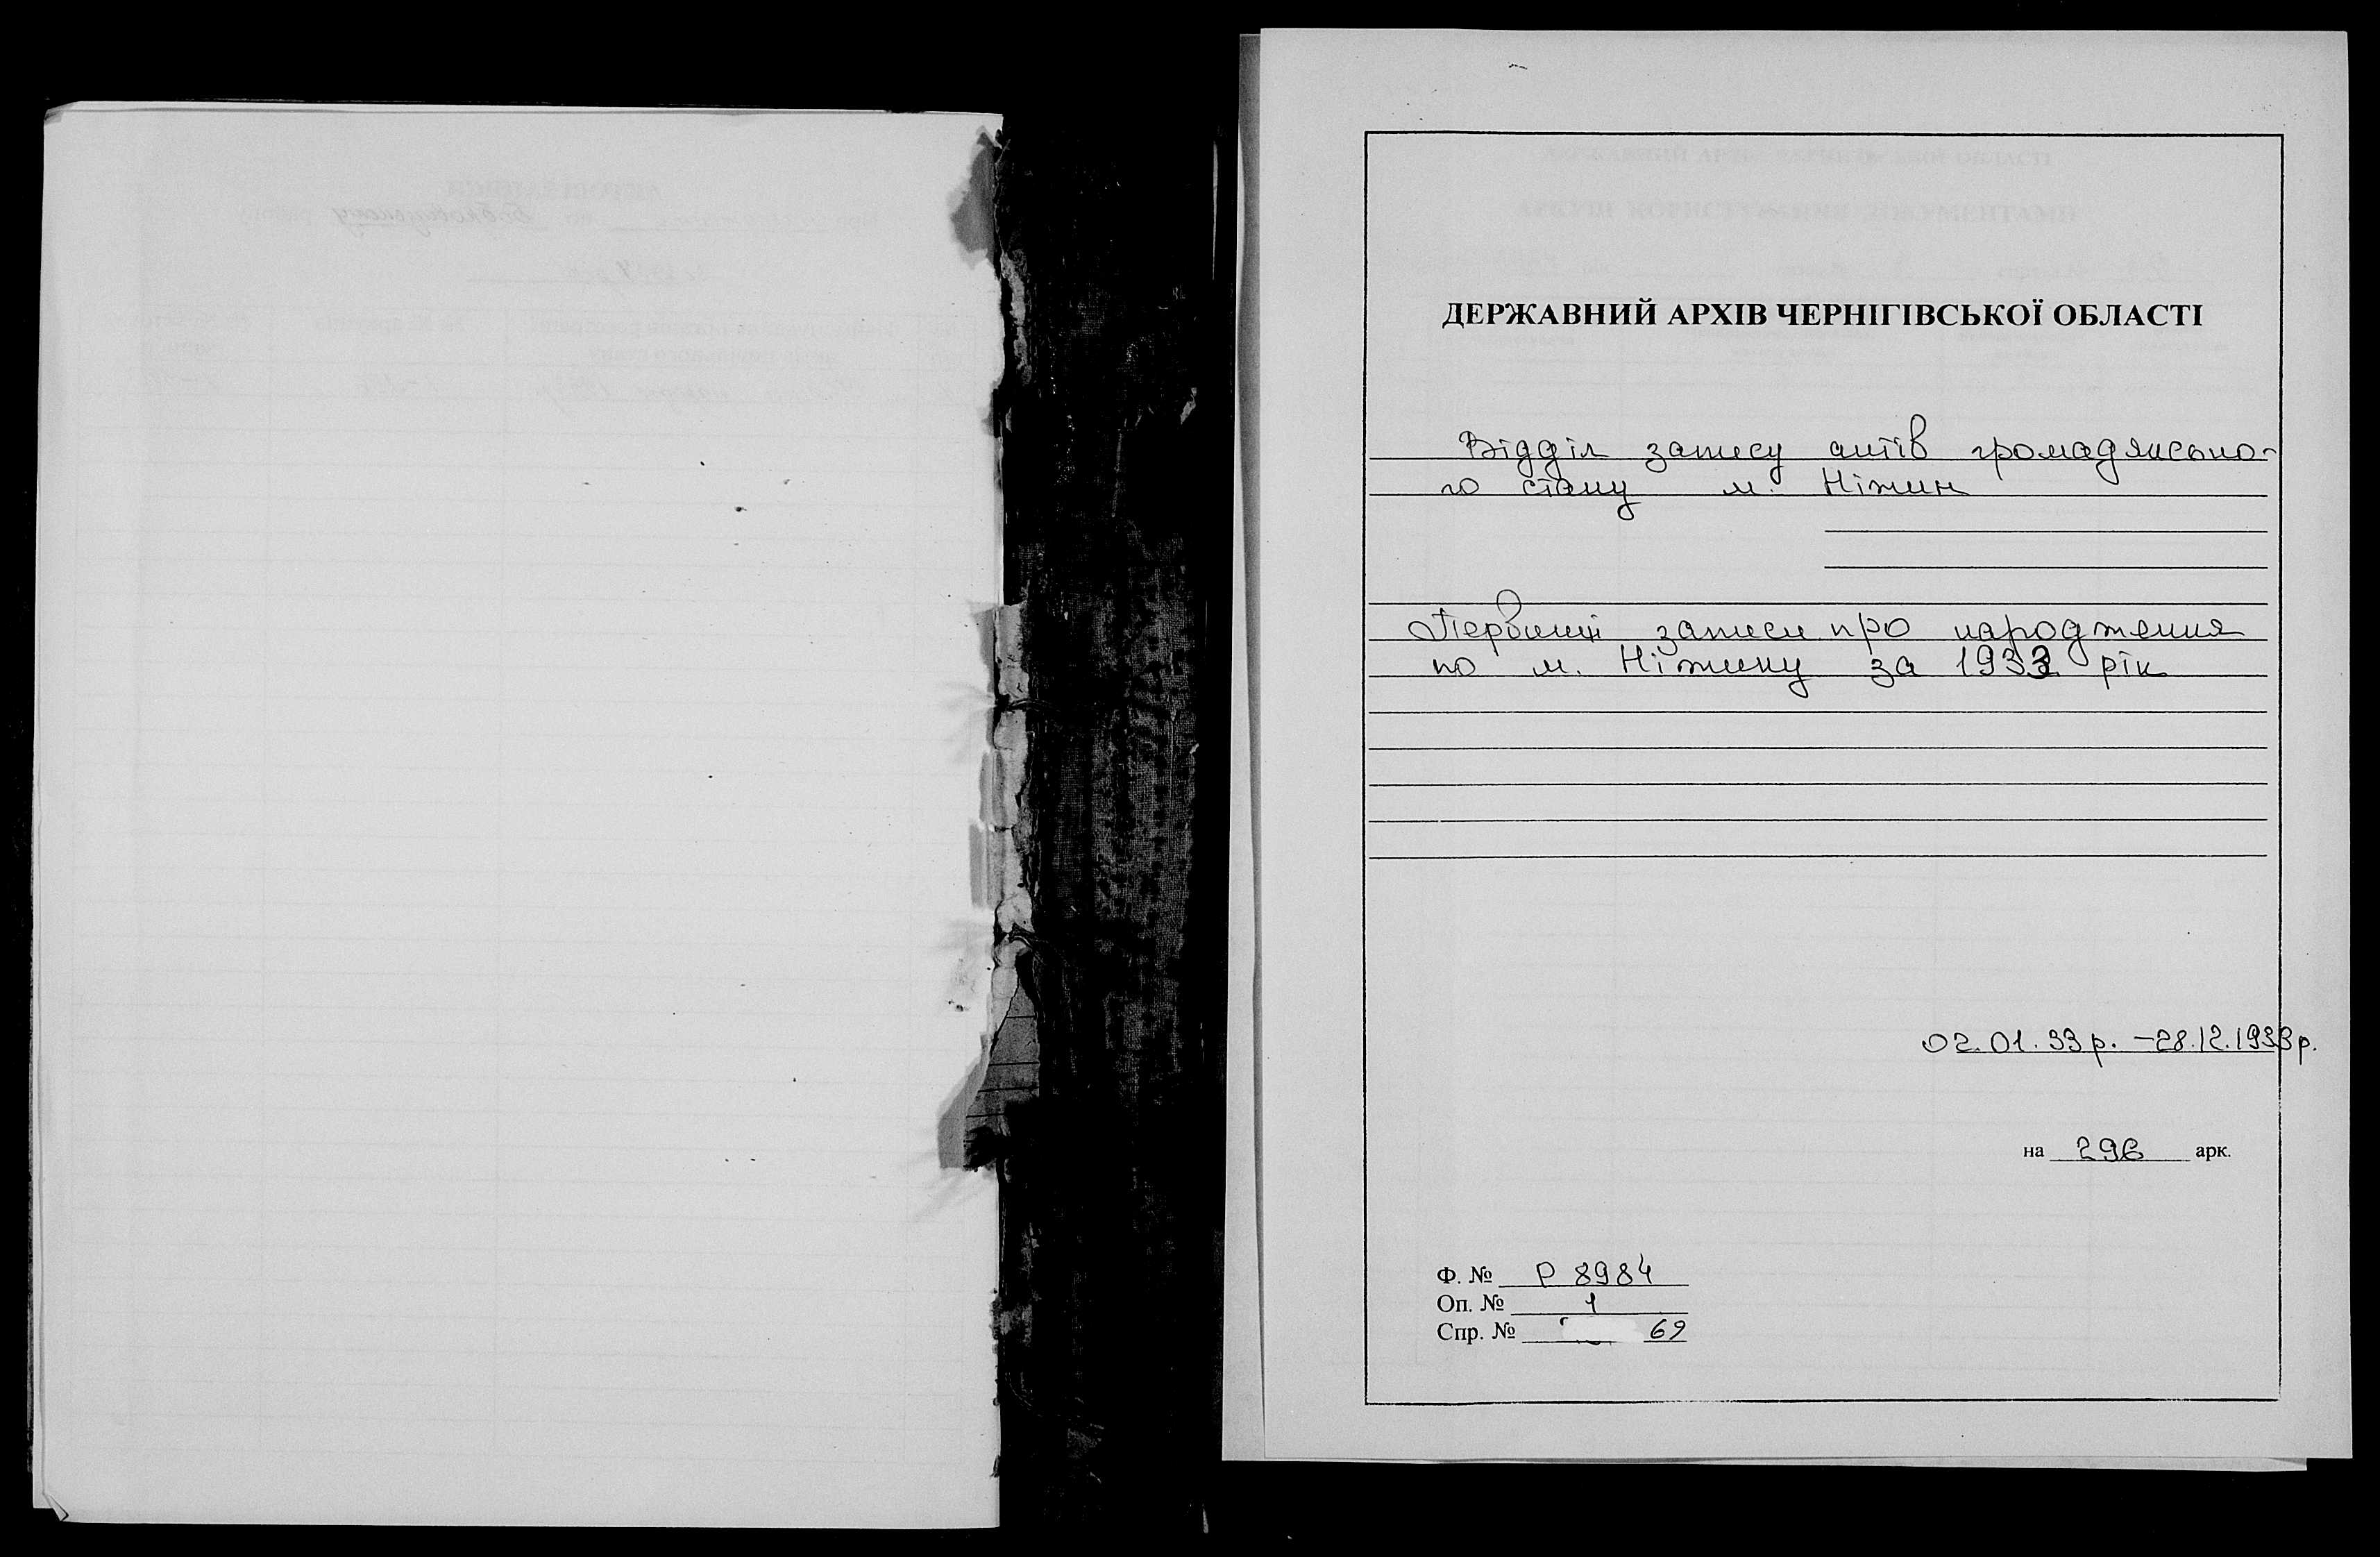 ДЕРЖАВНИЙ АРХІВ ЧЕРНІГІВСЬКОЇ ОБЛАСТІ
Відділ запису актів громадянсько-
го стану м. Ніжин
Первинні записи про народження
по м. Ніжину за 1933 рік
02.01.33 р. – 28.12.1933 р.
на 296 арк.
Ф. № Р 8984
Оп. № 1
Спр. № 69